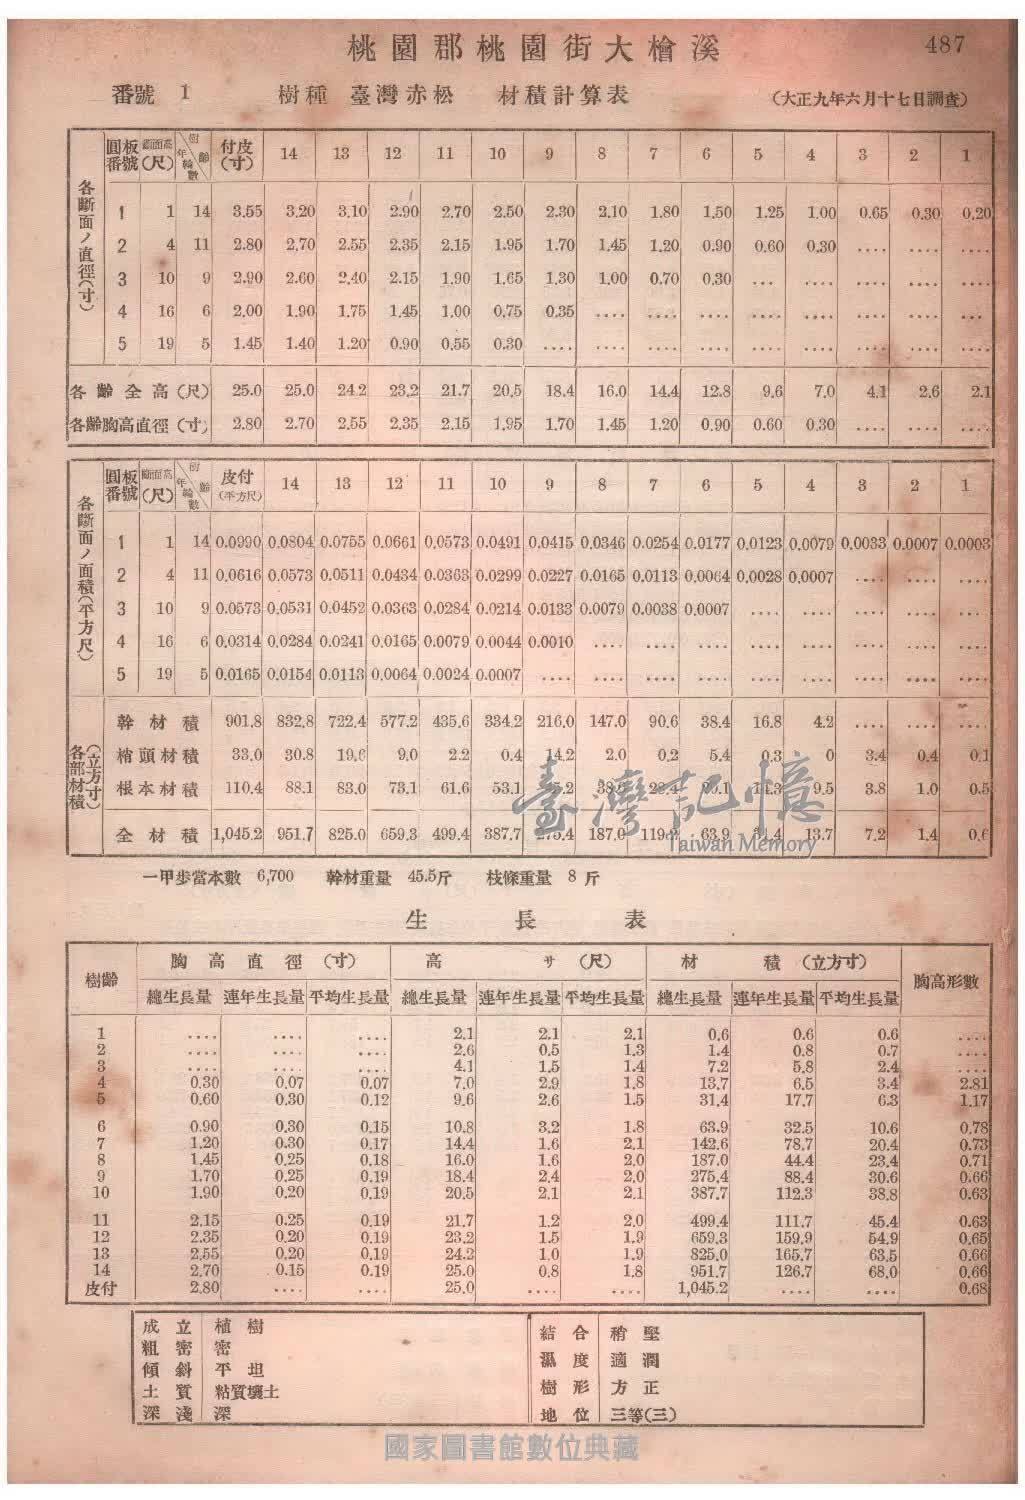 桃園郡桃園街大檜溪
487
番號 1 樹種 臺灣赤松 材積計算表 (大正九年六月十七日調査)
圓板番號 斷面高(尺) 樹齡 年輪數 付皮(寸) 14 13 12 11 10 9 8 7 6 5 4 3 2 1
各斷面ノ直徑(寸)
1 1 14 3.55 3.20 3.10 2.90 2.70 2.50 2.30 2.10 1.80 1.50 1.25 1.00 0.65 0.30 0.20
2 4 11 2.80 2.70 2.55 2.35 2.15 1.95 1.70 1.45 1.20 0.90 0.60 0.30 .... .... ....
3 10 9 2.90 2.60 2.40 2.15 1.90 1.65 1.30 1.00 0.70 0.30 ... .... .... .... ....
4 16 6 2.00 1.90 1.75 1.45 1.00 0.75 0.35 .... .... .... .... .... .... .... ...
5 19 5 1.45 1.40 1.20 0.90 0.55 0.30 .... .... .... .... .... .... .... .... ....
各齡全高(尺) 25.0 25.0 24.2 23.2 21.7 20.5 18.4 16.0 14.4 12.8 9.6 7.0 4.1 2.6 2.1
各齡胸高直徑(寸) 2.80 2.70 2.55 2.35 2.15 1.95 1.70 1.45 1.20 0.90 0.60 0.30 .... .... ....
圓板番號 斷面高(尺) 樹齡 年輪數 皮付(平方尺) 14 13 12 11 10 9 8 7 6 5 4 3 2 1
各斷面ノ面積(平方尺)
1 1 14 0.0990 0.0804 0.0755 0.0661 0.0573 0.0491 0.0415 0.0346 0.0254 0.0177 0.0123 0.0079 0.0033 0.0007 0.0003
2 4 11 0.0616 0.0573 0.0511 0.0434 0.0363 0.0299 0.0227 0.0165 0.0113 0.0064 0.0028 0.0007 .... .... ....
3 10 9 0.0573 0.0531 0.0452 0.0363 0.0284 0.0214 0.0133 0.0079 0.0038 0.0007 .... .... .... .... ....
4 16 6 0.0314 0.0284 0.0241 0.0165 0.0079 0.0044 0.0010 .... .... .... .... .... .... .... ....
5 19 5 0.0165 0.0154 0.0113 0.0064 0.0024 0.0007 .... .... .... .... .... .... .... .... ....
各部材積(立方寸)
幹材積 901.8 832.8 722.4 577.2 435.6 334.2 216.0 147.0 90.6 38.4 16.8 4.2 .... .... ....
梢頭材積 33.0 30.8 19.6 9.0 2.2 0.4 14.2 2.0 0.2 5.4 0.3 0 3.4 0.4 0.1
根本材積 110.4 88.1 83.0 73.1 61.6 53.1 9.5 3.8 1.0 0.5
全材積 1,045.2 951.7 825.0 659.3 499.4 387.7 275.4 187.0 63.9 31.4 13.7 7.2 1.4 0.6
臺灣記憶
Taiwan Memory
一甲歩當本數 6,700 幹材重量 45.5斤 枝條重量 8斤
生長表
樹齡 胸高直徑(寸) 高サ(尺) 材積(立方寸) 胸高形數
總生長量 連年生長量 平均生長量 總生長量 連年生長量 平均生長量 總生長量 連年生長量 平均生長量
1 .... .... .... 2.1 2.1 2.1 0.6 0.6 0.6 ....
2 .... .... .... 2.6 0.5 1.3 1.4 0.8 0.7 ....
3 .... .... .... 4.1 1.5 1.4 7.2 5.8 2.4 ....
4 0.30 0.07 0.07 7.0 2.9 1.8 13.7 6.5 3.4 2.81
5 0.60 0.30 0.12 9.6 2.6 1.5 31.4 17.7 6.3 1.17
6 0.90 0.30 0.15 10.8 3.2 1.8 63.9 32.5 10.6 0.78
7 1.20 0.30 0.17 14.4 1.6 2.1 142.6 78.7 20.4 0.73
8 1.45 0.25 0.18 16.0 1.6 2.0 187.0 44.4 23.4 0.71
9 1.70 0.25 0.19 18.4 2.4 2.0 275.4 88.4 30.6 0.66
10 1.90 0.20 0.19 20.5 2.1 2.1 387.7 112.3 38.8 0.63
11 2.15 0.25 0.19 21.7 1.2 2.0 499.4 111.7 45.4 0.63
12 2.35 0.20 0.19 23.2 1.5 1.9 659.3 159.9 54.9 0.65
13 2.55 0.20 0.19 24.2 1.0 1.9 825.0 165.7 63.5 0.66
14 2.70 0.15 0.19 25.0 0.8 1.8 951.7 126.7 68.0 0.66
皮付 2.80 .... .... 25.0 .... .... 1,045.2 .... .... 0.68
成立 植樹
粗密 密
傾斜 平坦
土質 粘質壤土
深淺 深
結合 稍堅
濕度 適潤
樹形 方正
地位 三等(三)
國家圖書館數位典藏